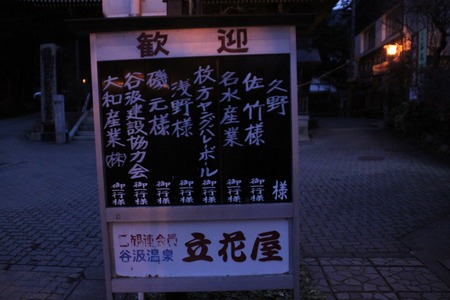 歓迎
久野 様
佐竹様
名水産業 御一行様
枚方ヤングバレーボール 御一行様
浅野様 御一行様
磯元様 御一行様
谷汲建設協力会 御一行様
大和産業(株) 御一行様
谷汲温泉
立花屋